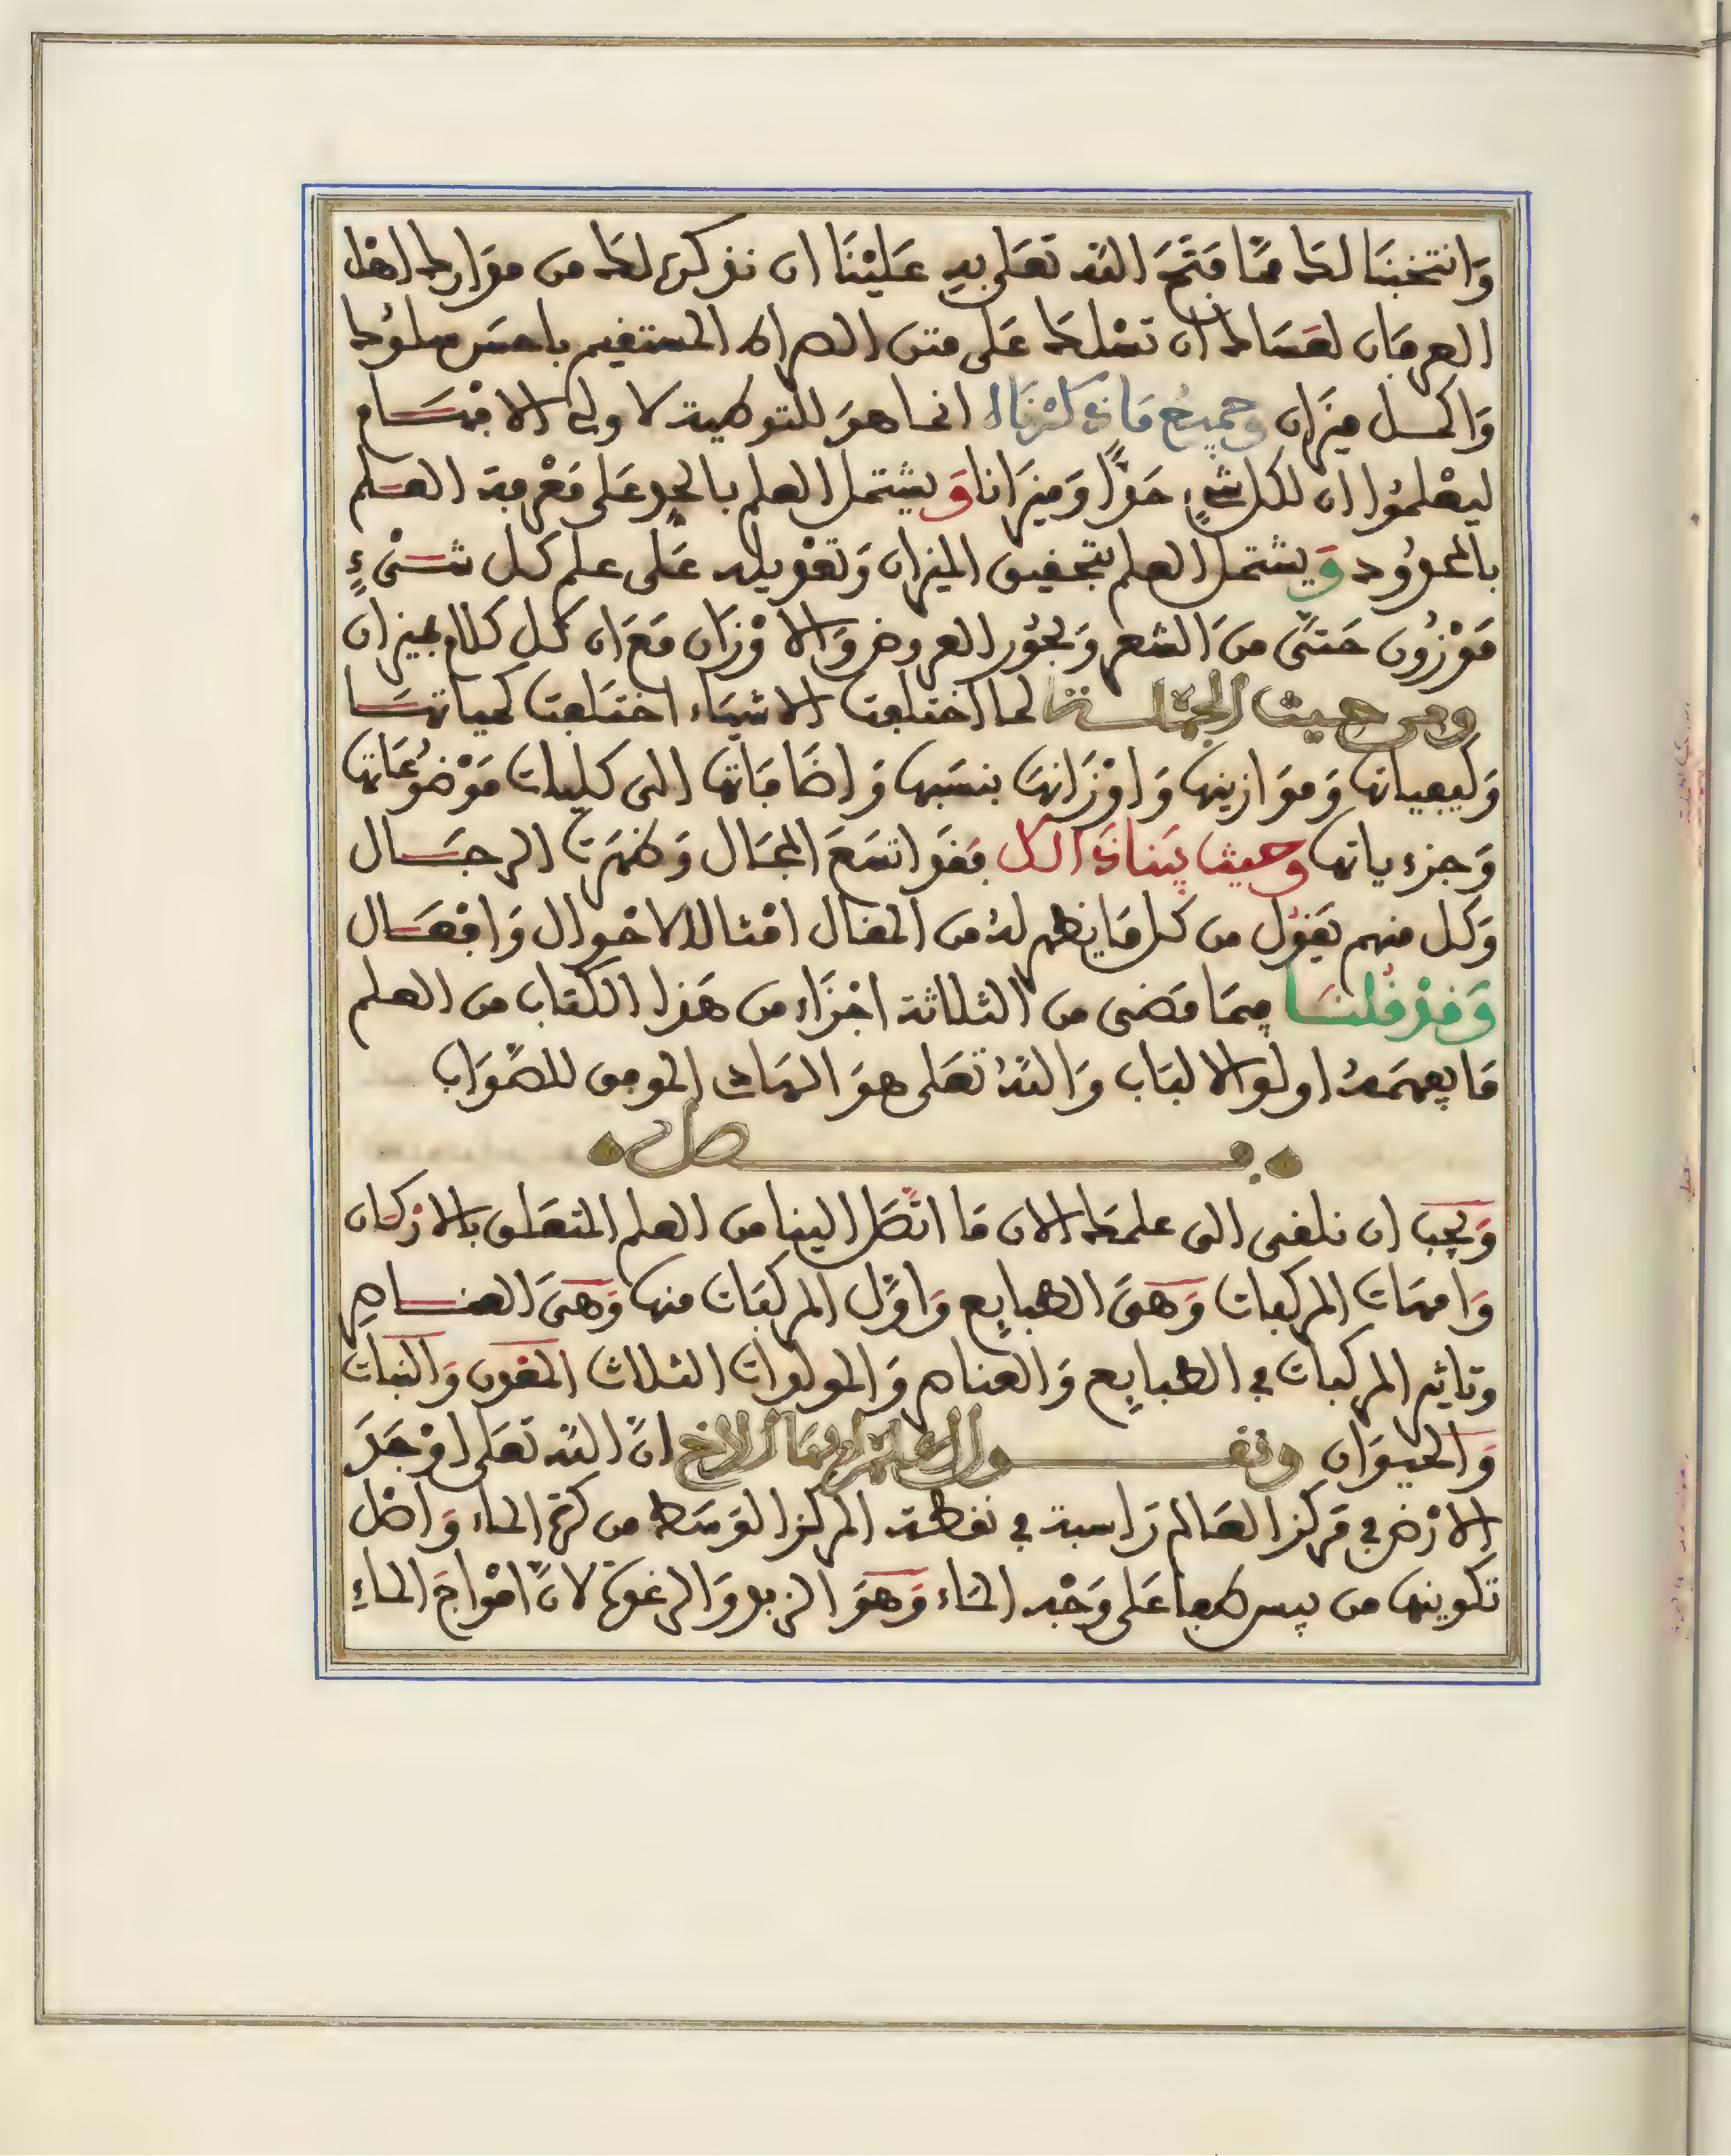 وَانتخبنَا لكَ ممَّا فَتَحَ اللّه تعَلى بهِ عَليْنَا ان نذكره لكَ من مدَارك اهْل
العرفان لعَسَاك ان تسْلكَ عَلى متن الصراط المستقيم باحسَن سلوُك
وَاكمل ميزَان وجميعُ مَا ذكرْنَاهُ انما هوَ للتوطية لاولى الاقسَام
ليعْلموُا ان لكل شىءٍ حدًّا وَميزَانا وَيشتمل العلم بالحدِ عَلى مَعْرفة العلم
بالمحدُود وَيشتمل العلم بتحقيق الميزان وَتعْديله عَلى علم كل شىْءٍ
مَوْزُون حَتىَّ منَ الشعر وَبحوُر العروض وَالاوْزَان مَعَ ان كل كلام بميزان
ومن حيث الجملة لما اختلفت الاشيَاء اختَلفت كمياتهَا
وَكيفياتها وَمَوَازينها وَاوْزَانهَا بنسَبها وَاضَافَاتها الى كليات مَوْضوُعَاتها
وَجزءياتها وحيث بَيناهَ الكل فقد اتسَعَ المجَال وَظهَرَت الرجَال
وَكل منهم يَقوُل من كل مَا يظهر لهُ من المقال امْثالا لاحْوال وَافعَال
وَقدْ قُلنَا فيمَا مَضى من الثلاثة اجْزَاء من هَذا الكتاب من العلم
مَا يفهمَهُ اولوا الالبَاب وَاللّهُ تعَلى هوَ الهَادى الموفق للصَّوَاب
فصل
وَيجب ان نلقى الى علمكَ الان مَا اتَّصَل الينا من العلم المتعَلق بالارْكان
وَامهَات المركبات وَهىَ الطبايع وَاوَّل المركبَات منها وَهىَ العناصر
وتاثير المركبات في الطبايع وَالعناصر وَالمولدات الثلاث المعْدن وَالنبات
وَالحيوَان ونقول اعلم ايها الاخ انَّ اللّه تعَلى اوْجَدَ
الارْض في مَركز العَالم رَاسبة في نقطة المركز الوَسَط من كرة الماء وَاصْل
تكوينها من يبس طفا عَلى وَجْه المَاء وَهوَ الزبد وَالرغوة لانَّ امْواجَ الماءِ